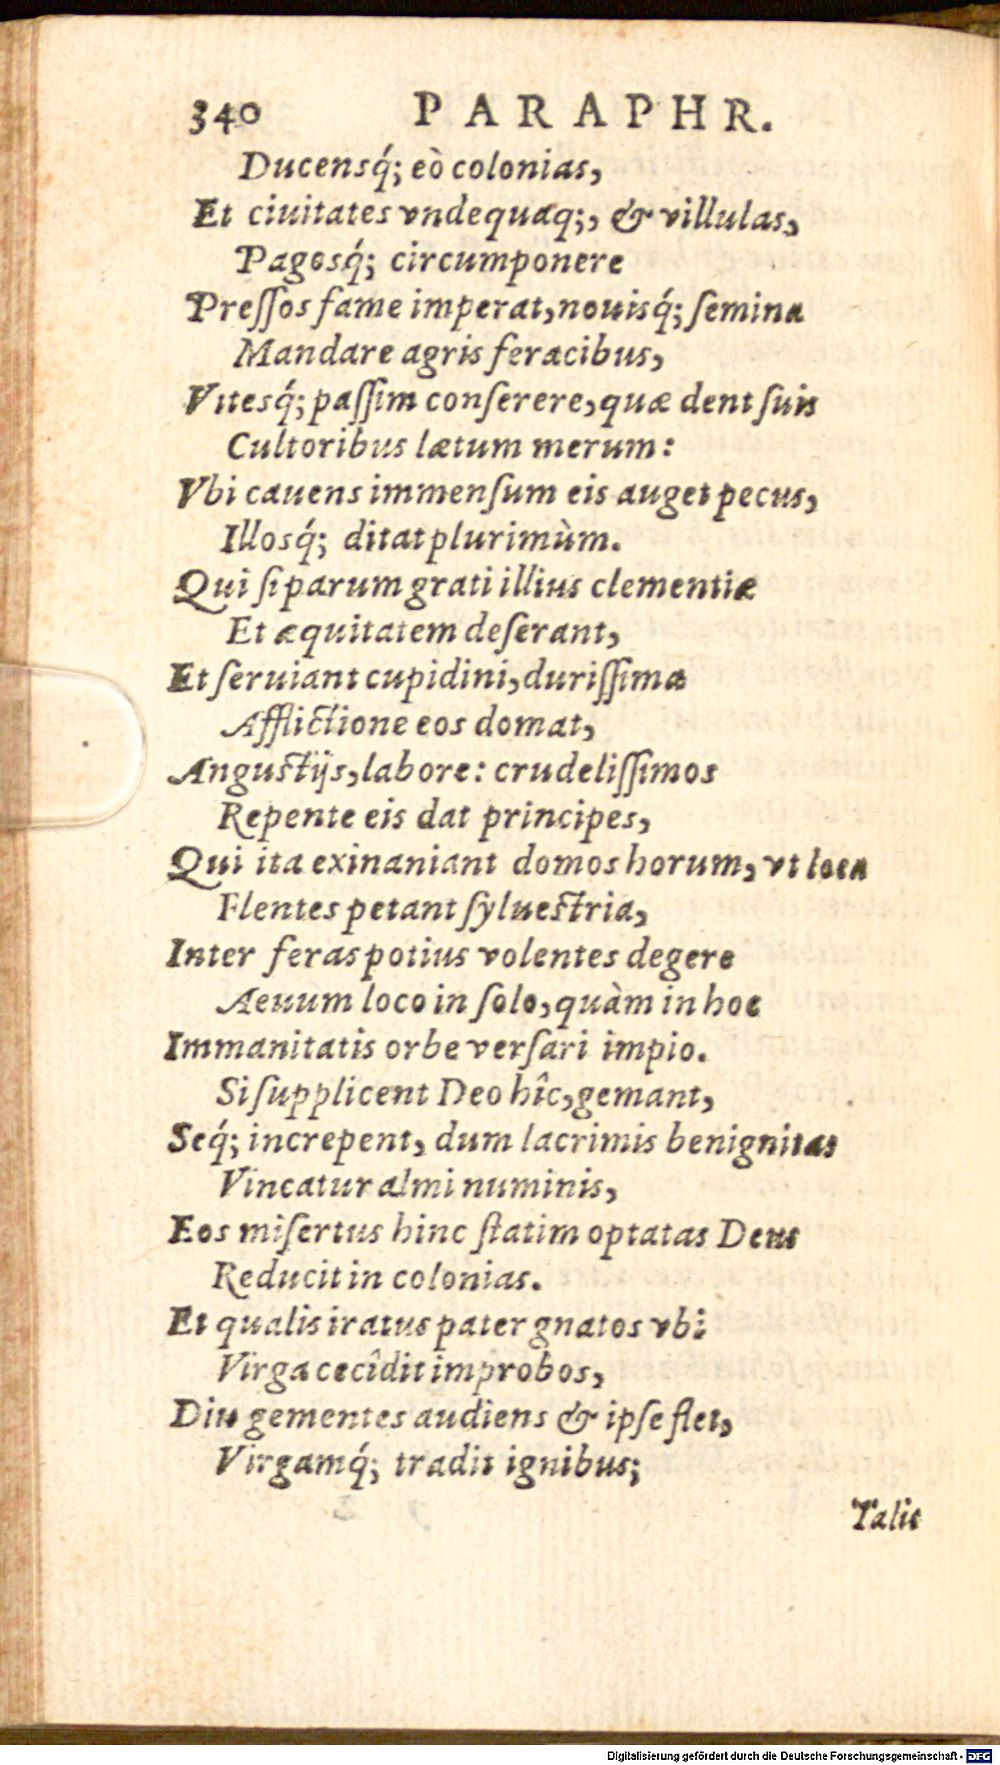 340 PARAPHR.
Ducensq́; eò colonias,
Et ciuitates vndequaq;, & villulas,
Pagosq́; circumponere
Preſſos fame imperat, nouisq́; ſemina
Mandare agris feracibus,
Vitesq́; paſſim conſerere, quæ dent ſuis
Cultoribus lætum merum:
Vbi cauens immenſum eis auget pecus,
Illosq́; ditat plurimùm.
Qui ſi parum grati illius clementiæ
Et æquitatem deſerant,
Et ſeruiant cupidini, duriſſima
Afflictione eos domat,
Angustijs, labore: crudeliſſimos
Repente eis dat principes,
Qui ita exinaniant domos horum, vt loca
Flentes petant ſyluestria,
Inter feras potius volentes degere
Aeuum loco in ſolo, quàm in hoc
Immanitatis orbe verſari impio.
Si ſupplicent Deo hîc, gemant,
Seq́; increpent, dum lacrimis benignitas
Vincatur almi numinis,
Eos miſertus hinc ſtatim optatas Deus
Reducit in colonias.
Et qualis iratus pater gnatos vbi
Virga cecîdit improbos,
Diu gementes audiens & ipſe flet,
Virgamq́; tradit ignibus;
Talis
Digitalisierung gefördert durch die Deutsche Forschungsgemeinschaft - DFG